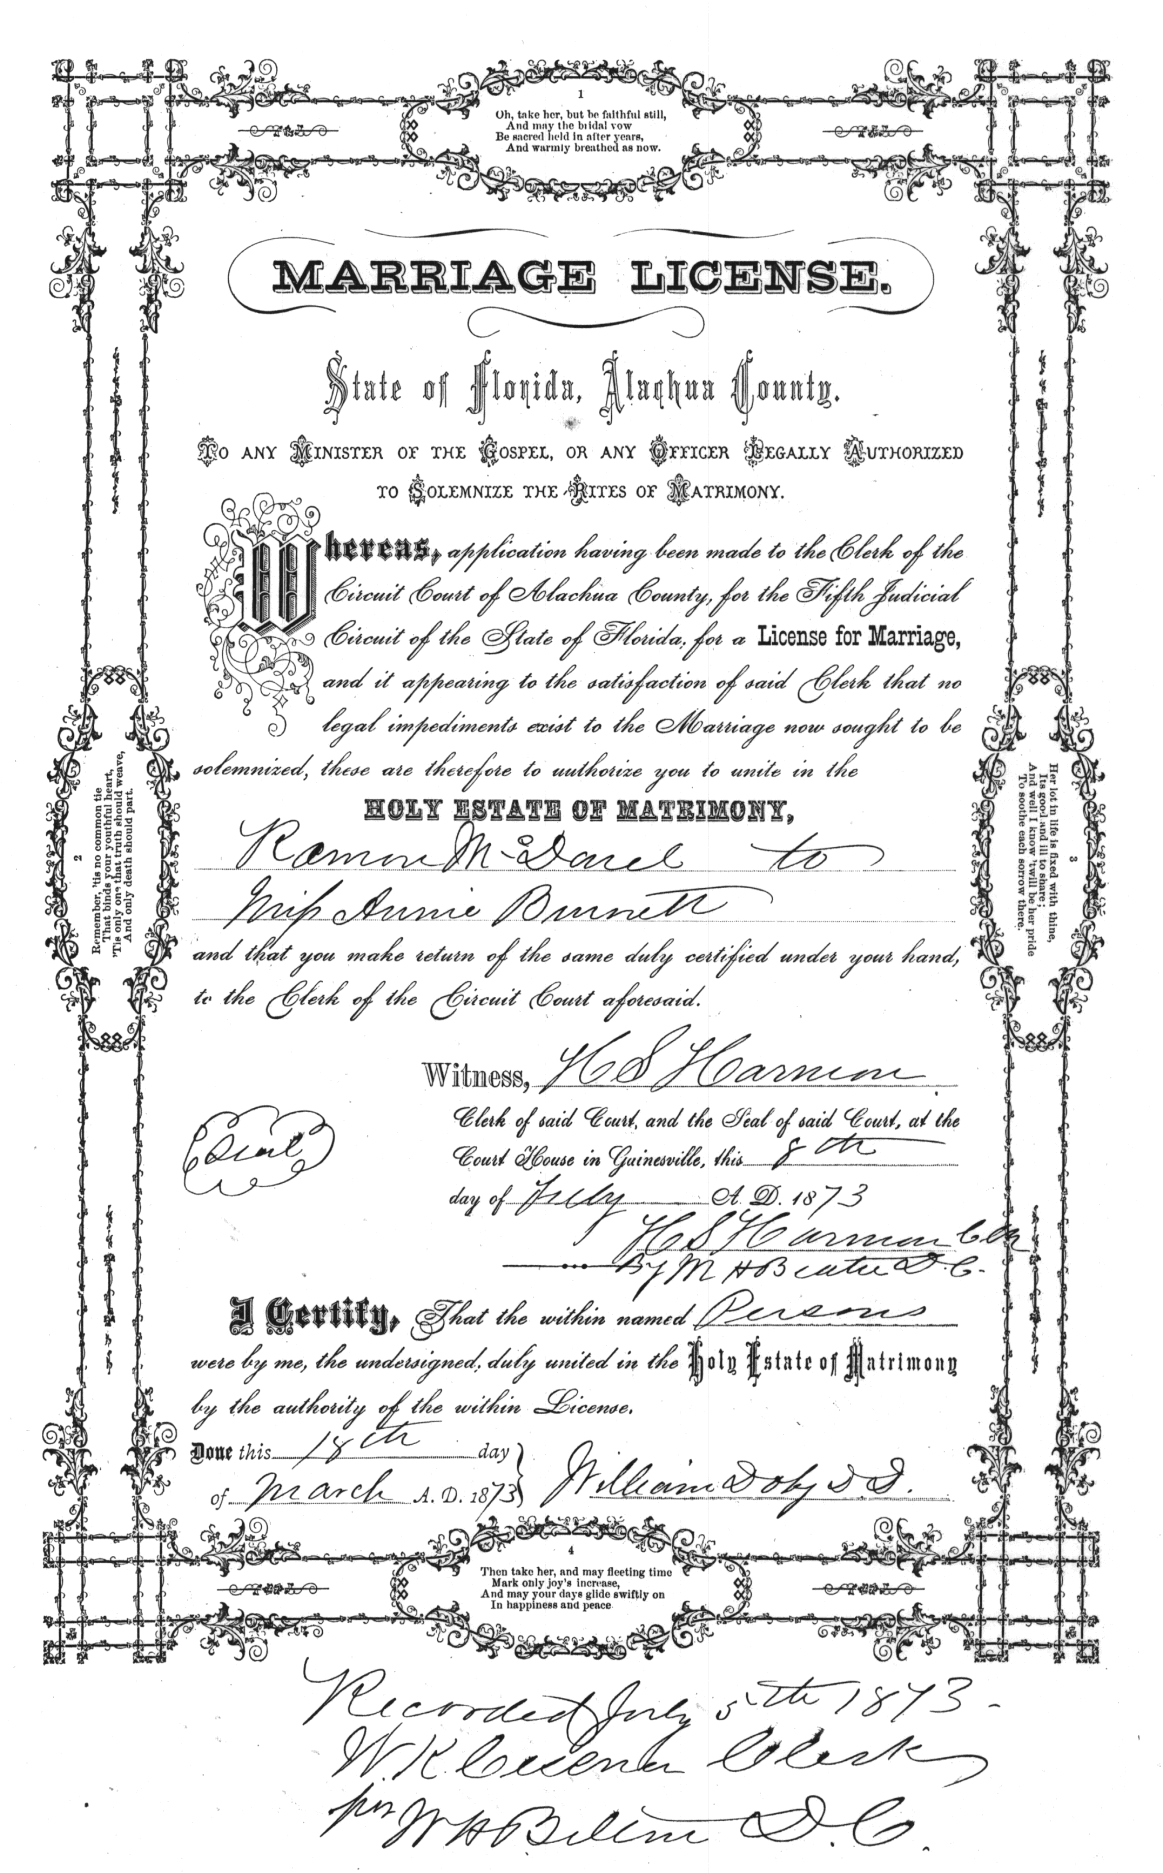 1
Oh, take her, but be faithful still,
And may the bridal vow
Be sacred held in after years,
And warmly breathed as now.
MARRIAGE LICENSE.
State of Florida, Alachua County.
To any Minister of the Gospel, or any Officer Legally Authorized
to Solemnize the Rites of Matrimony.
Whereas, application having been made to the Clerk of the
Circuit Court of Alachua County, for the Fifth Judicial
Circuit of the State of Florida, for a License for Marriage,
and it appearing to the satisfaction of said Clerk that no
legal impediments exist to the Marriage now sought to be
solemnized, these are therefore to authorize you to unite in the
HOLY ESTATE OF MATRIMONY,
Ramon McDarel to
Miss Annie Burnett
and that you make return of the same duly certified under your hand,
to the Clerk of the Circuit Court aforesaid.
Witness, H S Harmon
Clerk of said Court, and the Seal of said Court, at the
Court House in Gainesville, this 8th
day of July A. D. 1873
Seal
H S Harmon Clk
By M H D. C.
I Certify, That the within named Persons
were by me, the undersigned, duly united in the Holy Estate of Matrimony
by the authority of the within License.
Done this 18th day
of March A. D. 1873 William Doby D.
2
Remember, 'tis no common tie
That binds your youthful heart,
'Tis only one that truth should weave,
And only death should part.
3
Her lot in life is fixed with thine,
Its good and ill to share;
And well I know 'twill be her pride
To soothe each sorrow there.
4
Then take her, and may fleeting time
Mark only joy's increase,
And may your days glide swiftly on
In happiness and peace
Recorded July 5th 1873-
W. K. Cessna Clerk
per W H D. C.